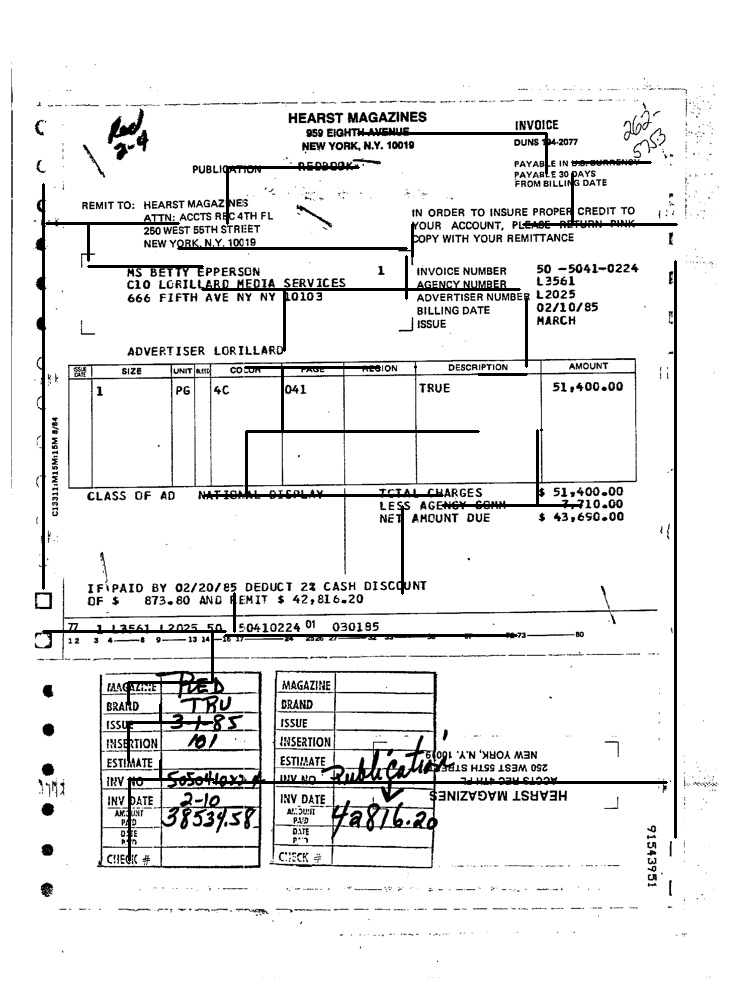 HEARST MAGAZINES
959 EIGHTH AVENUE
NEW YORK, N.Y. 10019
INVOICE
DUNS -2077
262-
5753
Red
2-4
PUBLICATION REDBOOK
PAYABLE IN U.S. CURRENCY
PAYABLE 30 DAYS
FROM BILLING DATE
REMIT TO: HEARST MAGAZINES
ATTN: ACCTS REC 4TH FL
250 WEST 55TH STREET
NEW YORK, N.Y. 10019
IN ORDER TO INSURE PROPER CREDIT TO
YOUR ACCOUNT, PLEASE RETURN PINK
COPY WITH YOUR REMITTANCE
MS BETTY EPPERSON 1
C/O LORILLARD MEDIA SERVICES
666 FIFTH AVE NY NY 10103
INVOICE NUMBER 50 -5041-0224
AGENCY NUMBER L3561
ADVERTISER NUMBER L2025
BILLING DATE 02/10/85
ISSUE MARCH
ADVERTISER LORILLARD
ISSUE DATE SIZE UNIT BLEED COLOR PAGE REGION DESCRIPTION AMOUNT
1 PG 4C 041 TRUE 51,400.00
C13311:M15M:15M 8/84
CLASS OF AD NATIONAL DISPLAY
TOTAL CHARGES $ 51,400.00
LESS AGENCY COMM 7,710.00
NET AMOUNT DUE $ 43,690.00
IF PAID BY 02/20/85 DEDUCT 2% CASH DISCOUNT
OF $ 873.80 AND REMIT $ 42,816.20
77 1 L3561 L2025 50 50410224 01 030185
1 2 3 4 8 9 13 14 16 17 24 25 26 27 72-73 80
MAGAZINE RED
BRAND TRU
ISSUE 3-1-85
INSERTION 101
ESTIMATE
INV NO
INV DATE 2-10
AMOUNT PAID 38534.58
DATE PAID
CHECK #
MAGAZINE
BRAND
ISSUE
INSERTION
ESTIMATE
INV NO Publication
INV DATE
AMOUNT PAID 42816.20
DATE PAID
CHECK #
HEARST MAGAZINES
ACCTS REC 4TH FL
250 WEST 55TH STREET
NEW YORK, N.Y. 10019
91543951